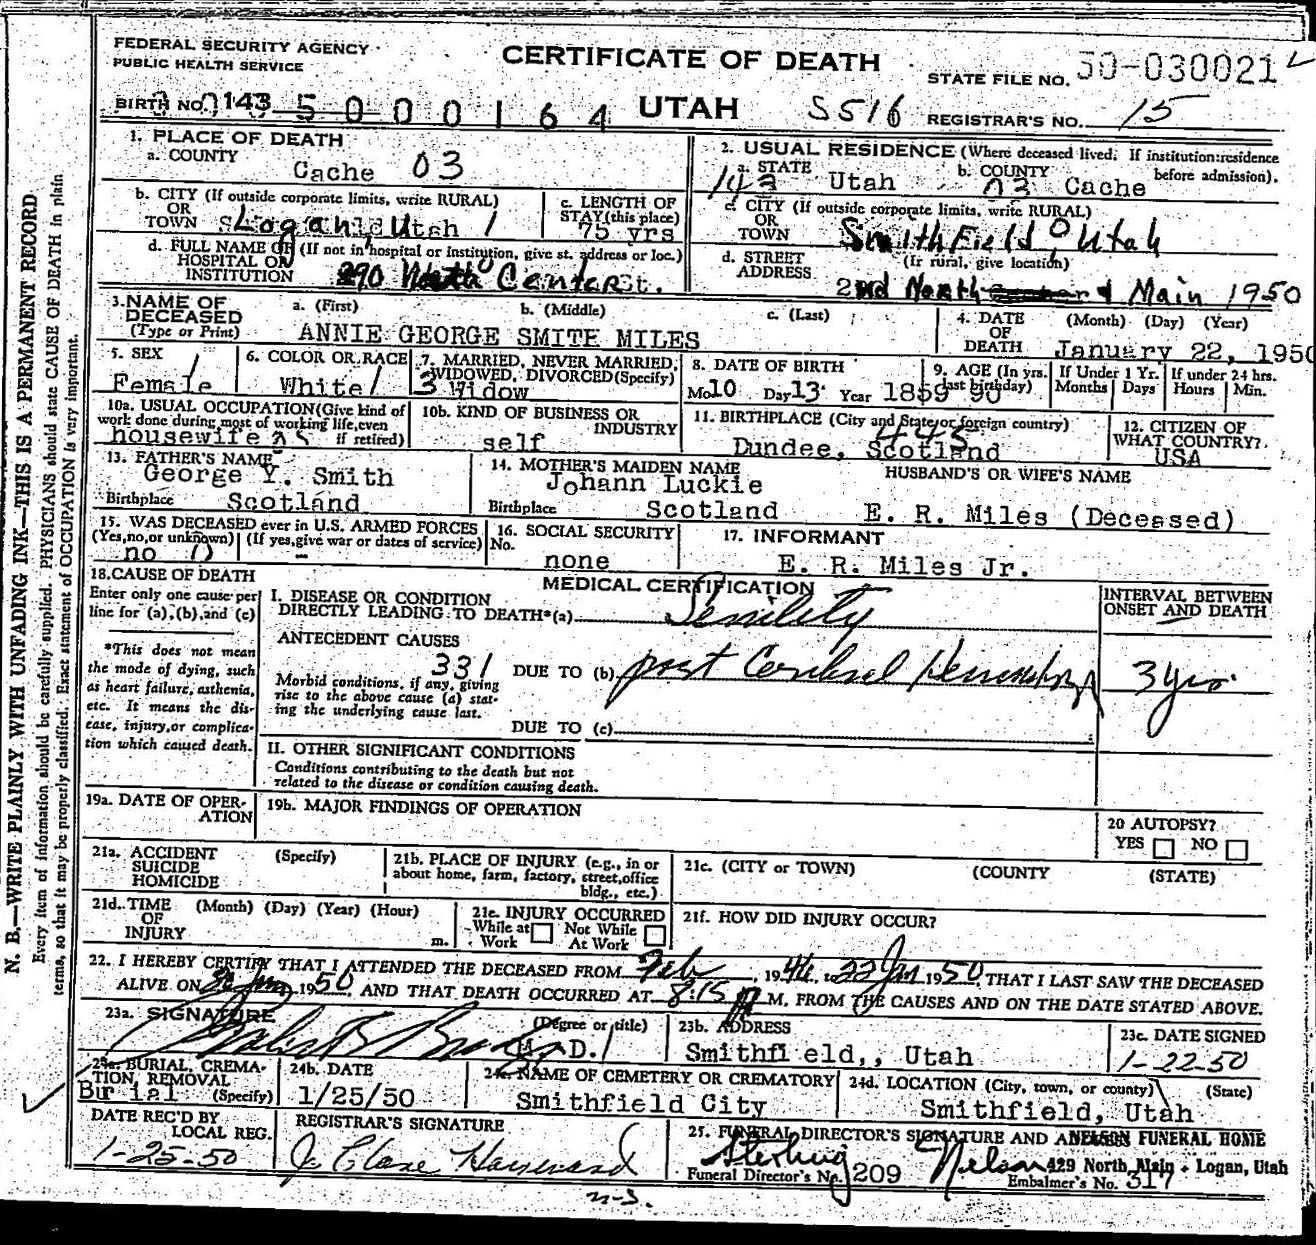 FEDERAL SECURITY AGENCY
PUBLIC HEALTH SERVICE
CERTIFICATE OF DEATH
STATE FILE NO. 50-030021
BIRTH NO. 143 5000164
UTAH
S516
REGISTRAR'S NO. 15
1. PLACE OF DEATH
a. COUNTY
Cache 03
2. USUAL RESIDENCE (Where deceased lived. If institution: residence before admission).
a. STATE Utah
b. COUNTY 03 Cache
b. CITY (If outside corporate limits, write RURAL)
OR
TOWN Logan, Utah 1
c. LENGTH OF
STAY (this place)
75 yrs
c. CITY (If outside corporate limits, write RURAL)
OR
TOWN Smithfield, 0 Utah
d. FULL NAME OF (If not in hospital or institution, give st. address or loc.)
HOSPITAL OR
INSTITUTION 290 North Center St.
d. STREET (If rural, give location)
ADDRESS
2nd North & Main 1950
3. NAME OF DECEASED
(Type or Print)
a. (First) b. (Middle) c. (Last)
ANNIE GEORGE SMITE MILES
4. DATE OF DEATH (Month) (Day) (Year)
January 22, 1950
5. SEX
Female
6. COLOR OR RACE
White 1
7. MARRIED, NEVER MARRIED,
WIDOWED, DIVORCED (Specify)
3 Widow
8. DATE OF BIRTH
Mo 10 Day 13 Year 1859
9. AGE (In yrs. last birthday)
90
If Under 1 Yr. Months Days
If under 24 hrs. Hours Min.
10a. USUAL OCCUPATION (Give kind of
work done during most of working life, even
if retired)
housewife
10b. KIND OF BUSINESS OR
INDUSTRY
self
11. BIRTHPLACE (City and State or foreign country)
445
Dundee, Scotland
12. CITIZEN OF
WHAT COUNTRY?
USA
13. FATHER'S NAME
George Y. Smith
Birthplace Scotland
14. MOTHER'S MAIDEN NAME
Johann Luckie
Birthplace Scotland
HUSBAND'S OR WIFE'S NAME
E. R. Miles (Deceased)
15. WAS DECEASED ever in U.S. ARMED FORCES
(Yes, no, or unknown) (If yes, give war or dates of service)
no 0 -
16. SOCIAL SECURITY
No.
none
17. INFORMANT
E. R. Miles Jr.
18. CAUSE OF DEATH
Enter only one cause per
line for (a), (b), and (c)
*This does not mean
the mode of dying, such
as heart failure, asthenia,
etc. It means the dis-
ease, injury, or complica-
tion which caused death.
MEDICAL CERTIFICATION
I. DISEASE OR CONDITION
DIRECTLY LEADING TO DEATH*(a) Senility
ANTECEDENT CAUSES
331
Morbid conditions, if any, giving
rise to the above cause (a) stat-
ing the underlying cause last.
DUE TO (b) post Cerebral Hemorrhage
DUE TO (c)
INTERVAL BETWEEN
ONSET AND DEATH
3 yrs.
II. OTHER SIGNIFICANT CONDITIONS
Conditions contributing to the death but not
related to the disease or condition causing death.
19a. DATE OF OPER-
ATION
19b. MAJOR FINDINGS OF OPERATION
20 AUTOPSY?
YES NO
21a. ACCIDENT
SUICIDE
HOMICIDE
(Specify)
21b. PLACE OF INJURY (e.g., in or
about home, farm, factory, street, office
bldg., etc.)
21c. (CITY or TOWN) (COUNTY (STATE)
21d. TIME OF INJURY (Month) (Day) (Year) (Hour)
m.
21e. INJURY OCCURRED
While at Work Not While At Work
21f. HOW DID INJURY OCCUR?
22. I HEREBY CERTIFY THAT I ATTENDED THE DECEASED FROM Feb, 1946, to 22 Jan 1950, THAT I LAST SAW THE DECEASED
ALIVE ON Jan, 1950, AND THAT DEATH OCCURRED AT 8:15 P M, FROM THE CAUSES AND ON THE DATE STATED ABOVE.
23a. SIGNATURE (Degree or title)
M. D.
23b. ADDRESS
Smithfield,, Utah
23c. DATE SIGNED
1-22-50
24a. BURIAL, CREMA-
TION, REMOVAL
(Specify)
Burial
24b. DATE
1/25/50
24c. NAME OF CEMETERY OR CREMATORY
Smithfield City
24d. LOCATION (City, town, or county) (State)
Smithfield, Utah
DATE REC'D BY
LOCAL REG.
1-25-50
REGISTRAR'S SIGNATURE
25. FUNERAL DIRECTOR'S SIGNATURE AND NELSON FUNERAL HOME
Sterling Nelson 429 North Main - Logan, Utah
Funeral Director's No. 209
Embalmer's No. 317
N. B.—WRITE PLAINLY WITH UNFADING INK—THIS IS A PERMANENT RECORD
Every item of information should be carefully supplied. PHYSICIANS should state CAUSE OF DEATH in plain
terms, so that it may be properly classified. Exact statement of OCCUPATION is very important.